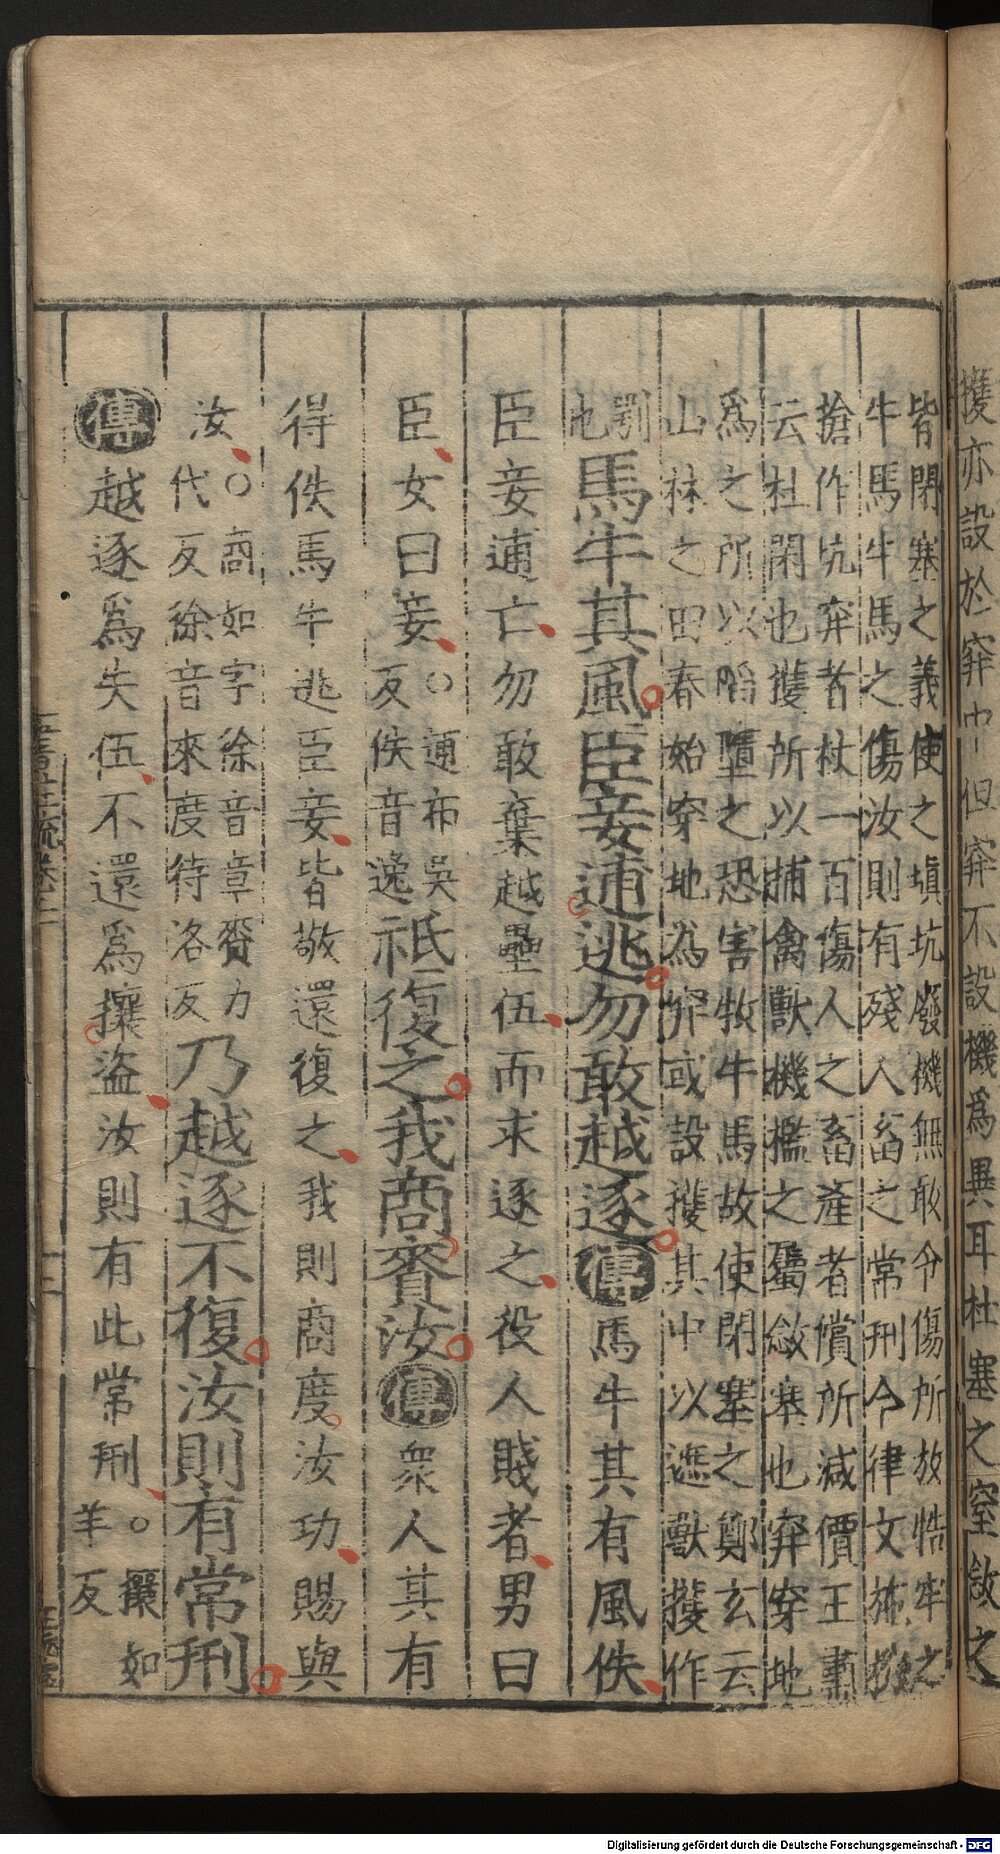 擭亦設於穽中但穽不設機爲異耳杜塞之窒敜之
皆閉塞之義使之塡坑廢機無敢令傷所放牿牢之
牛馬牛馬之傷汝則有殘人畜之常刑今律文施機
搶作坑穽者杖一百傷人之畜產者償所減價王肅
云杜閑也擭所以捕禽獸機檻之屬敜塞也穽穿地
爲之所以陷墮之恐害牧牛馬故使閉塞之鄭玄云
山林之田春始穿地爲穽或設擭其中以遮獸擭作
鄂也馬牛其風臣妾逋逃勿敢越逐傳馬牛其有風佚
臣妾逋亡勿敢棄越壘伍而求逐之役人賤者男曰
臣女曰妾○逋布吳反佚音逸祗復之我商賚汝傳衆人其有
得佚馬牛逃臣妾皆敬還復之我則商度汝功賜與
汝○商如字徐音章賚力代反徐音來度待洛反乃越逐不復汝則有常刑
傳越逐爲失伍不還爲攘盜汝則有此常刑○攘如羊反
Digitalisierung gefördert durch die Deutsche Forschungsgemeinschaft - DFG